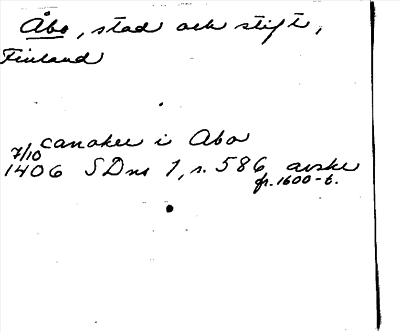 Åbo, stad och stift,
Finland
canokee i Abo
7/10
1406 SDns 1, s. 586, avskr
fr. 1600-t.